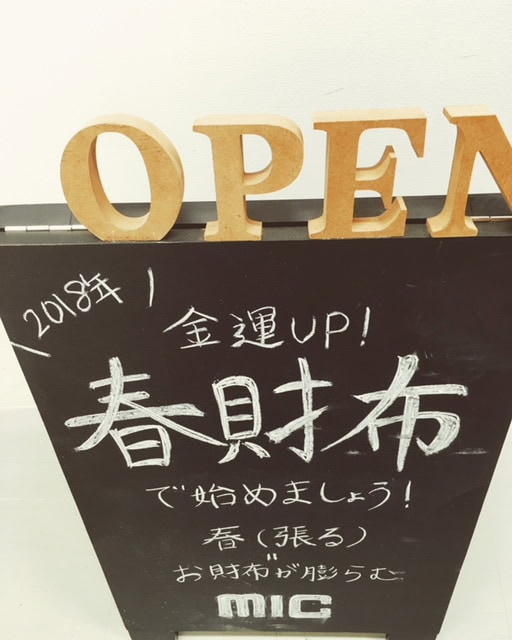 OPEN
2018年
金運UP!
春財布
で始めましょう!
春(張る)
"
お財布が膨らむ
MIC